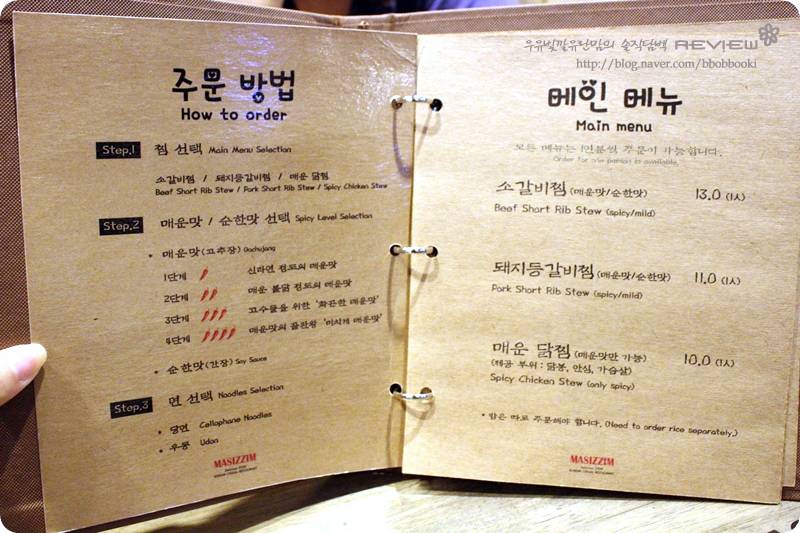 우유빛깔유란맘의 솔직담백 REVIEW
http://blog.naver.com/bbobbooki
주문 방법
How to order
Step.1 찜 선택 Main Menu Selection
소갈비찜 / 돼지등갈비찜 / 매운 닭찜
Beef Short Rib Stew / Pork Short Rib Stew / Spicy Chicken Stew
Step.2 매운맛 / 순한맛 선택 Spicy Level Selection
• 매운맛(고추장) Gochujang
1단계 신라면 정도의 매운맛
2단계 매운 불닭 정도의 매운맛
3단계 고수들을 위한 '화끈한 매운맛'
4단계 매운맛의 끝판왕 '미치게 매운맛'
• 순한맛(간장) Soy Sauce
Step.3 면 선택 Noodles Selection
• 당면 Cellophane Noodles
• 우동 Udon
MASIZZIM
KOREAN CASUAL RESTAURANT
메인 메뉴
Main menu
모든 메뉴는 1인분씩 주문이 가능합니다.
Order for one person is available.
소갈비찜(매운맛/순한맛) 13.0 (1人)
Beef Short Rib Stew (spicy/mild)
돼지등갈비찜(매운맛/순한맛) 11.0 (1人)
Pork Short Rib Stew (spicy/mild)
매운 닭찜(매운맛만 가능) 10.0 (1人)
(제공 부위 : 닭봉, 안심, 가슴살)
Spicy Chicken Stew (only spicy)
* 밥은 따로 주문해야 합니다. (Need to order rice separately.)
MASIZZIM
KOREAN CASUAL RESTAURANT